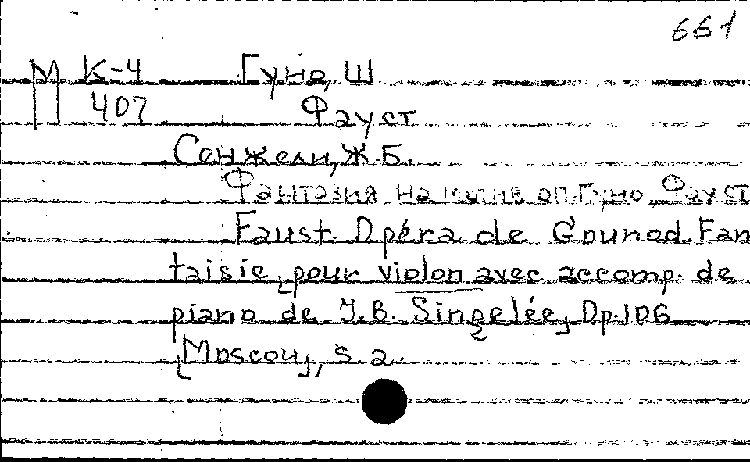 661
М К-4 Гуно, Ш
407 Фауст
Сенжели, Ж.Б.
Фантазия на мотив оп. Гуно Фауст
Faust. Opéra de Gounod. Fan
taisie pour violon avec accomp. de
piano de J.B. Singelée, Op.106
[Moscou], s.a.